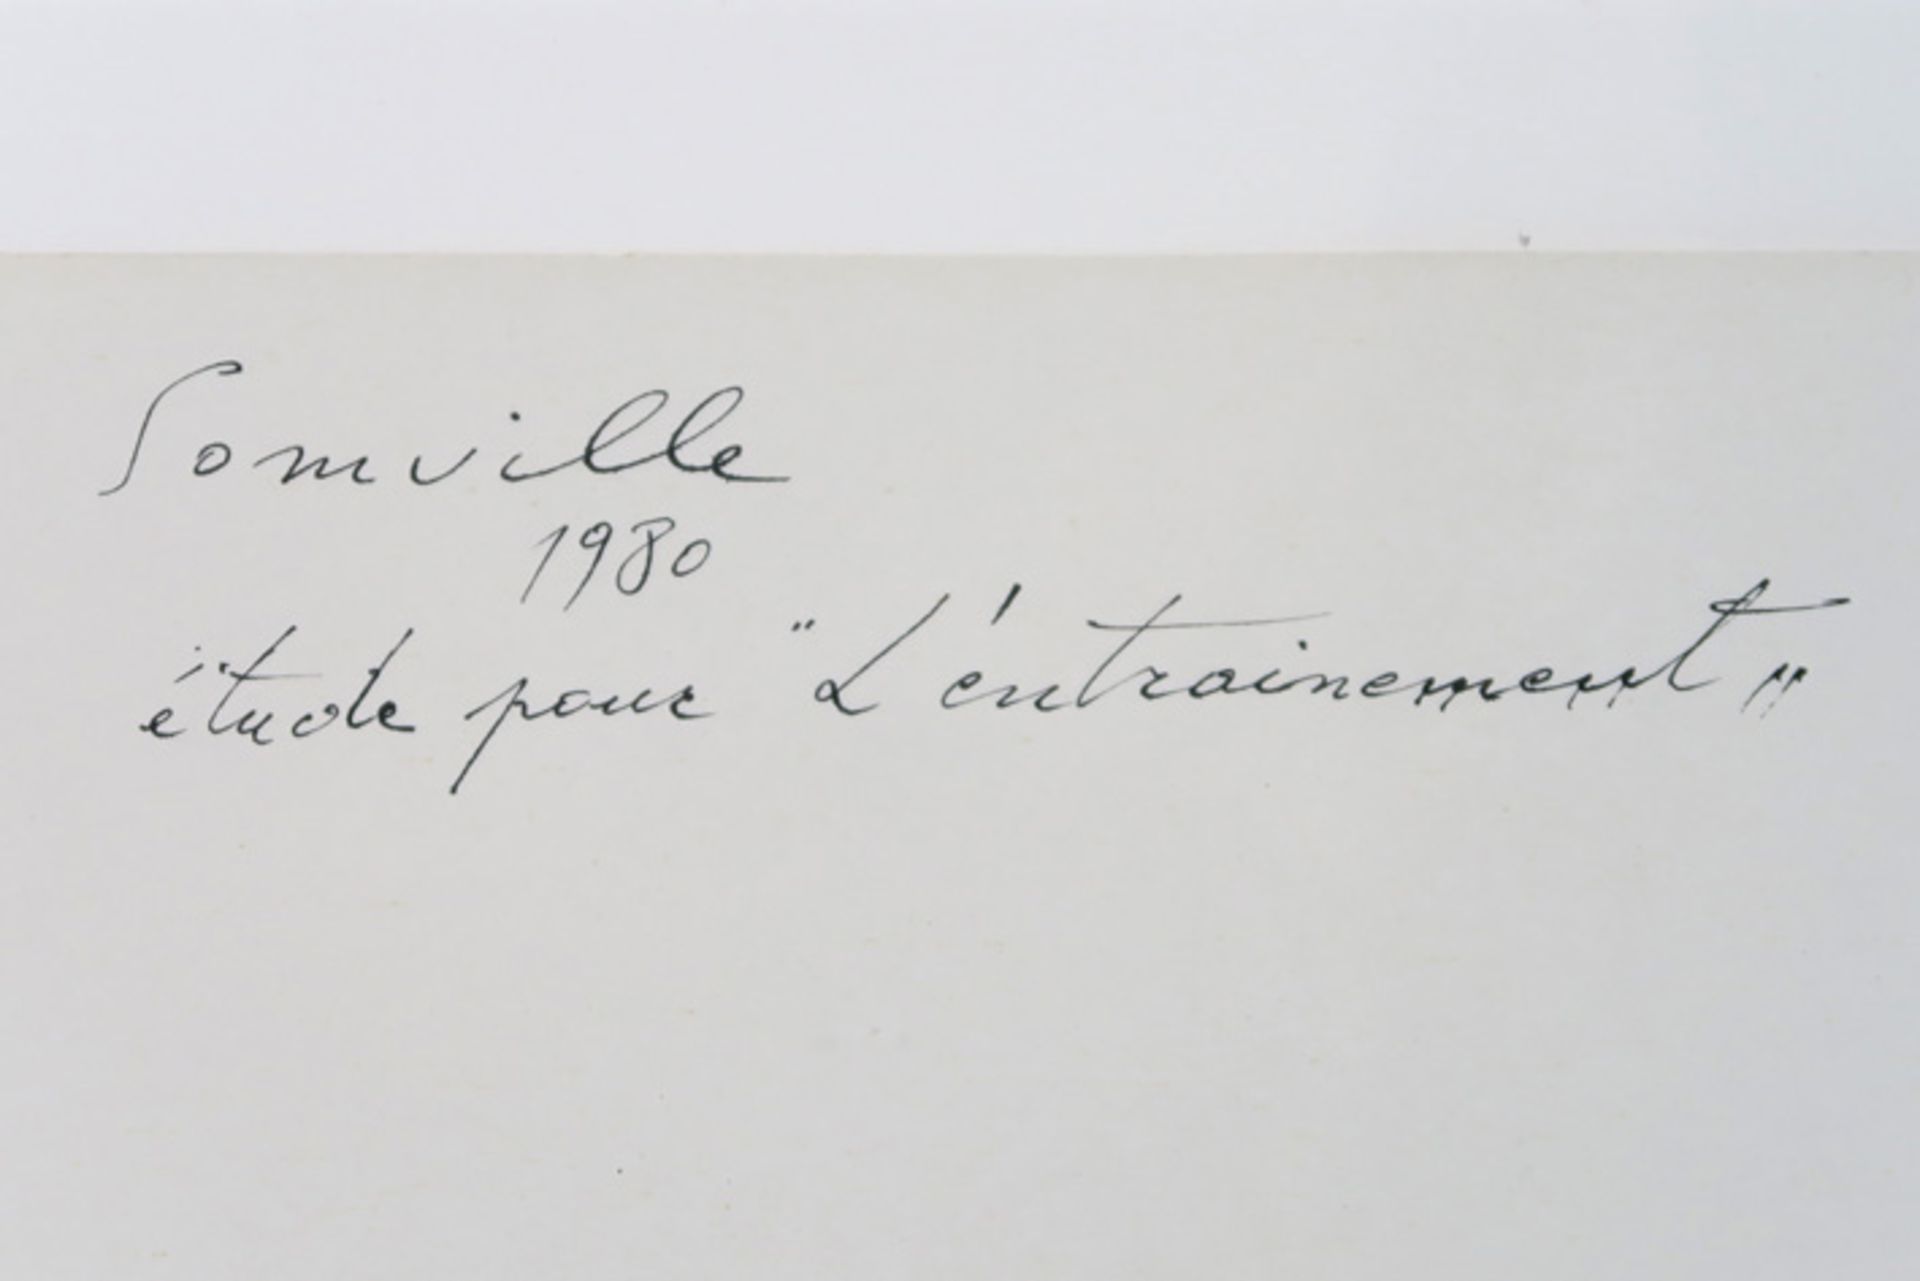 Somville
1980
étude pour "L'entrainement"